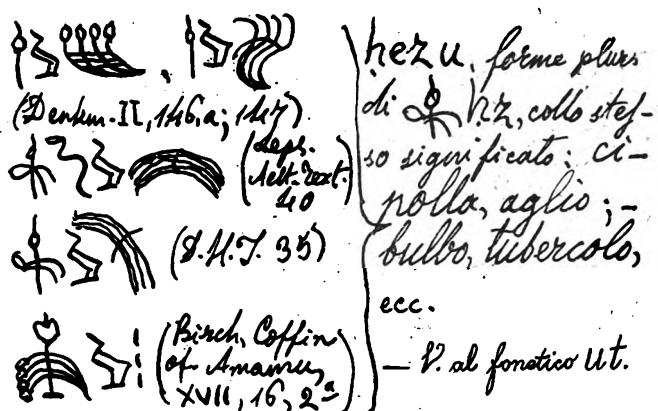 (Denkm. II, 146, a; 147)
(Leps.
Aelt. Text.
40
(D. H. I. 35)
(Birch, Coffin
of Amamu,
XVII, 16, 2ª
ḥezu, forme plur.
di ḥz, collo stes-
so significato: ci-
polla, aglio; –
bulbo, tubercolo,
ecc.
– V. al fonetico Ut.